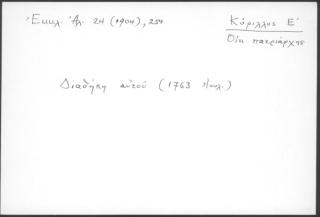 Ἐκκλ. Ἀλ. 24 (1904), 254
Κύριλλος Ε'
Οἰκ. πατριάρχης
Διαθήκη αὐτοῦ (1763 Ἰουλ.)